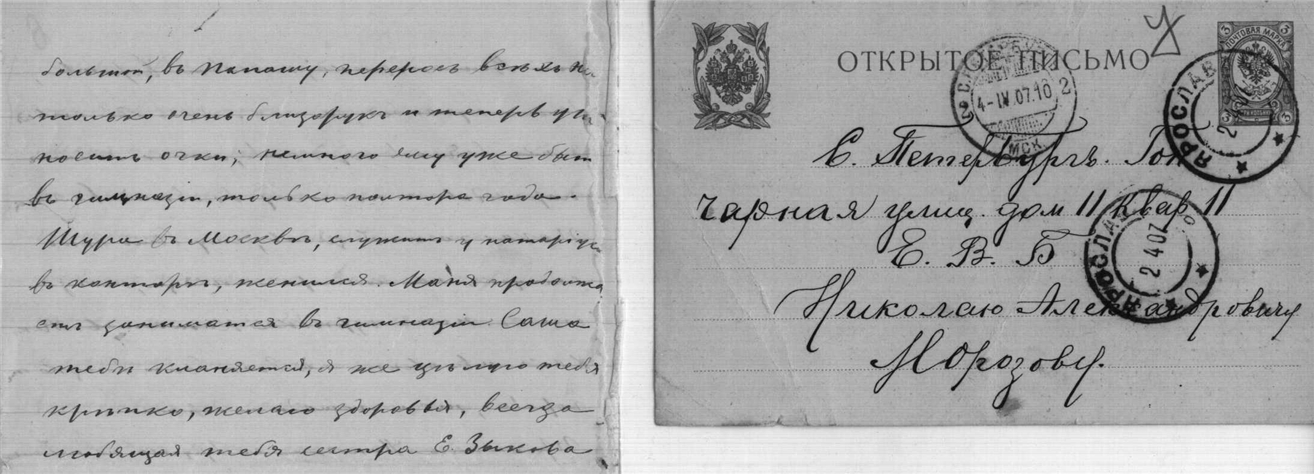 большой, въ папашу, переросъ всѣхъ
только очень близорукъ и теперь
носитъ очки, немного ему уже
въ гимназіи, только полтора года.
Шура въ Москвѣ, служитъ у
въ конторѣ, женился. Маня
занимается въ гимназіи. Саша
тебѣ кланяется, я же цѣлую тебя
крѣпко, желаю здоровья, всегда
любящая тебя сестра Е. Зыкова
ОТКРЫТОЕ ПИСЬМО
ПОЧТОВАЯ МАРКА
3 3
3 3
4-IV.07.10
2
ЯРОСЛАВ
2 4 07
С. Петербургъ. Гон
чарная улиц. дом 11 квар 11
Е. В. Б
ЯРОСЛА
2 4 07
Николаю Александровичу
Морозову.